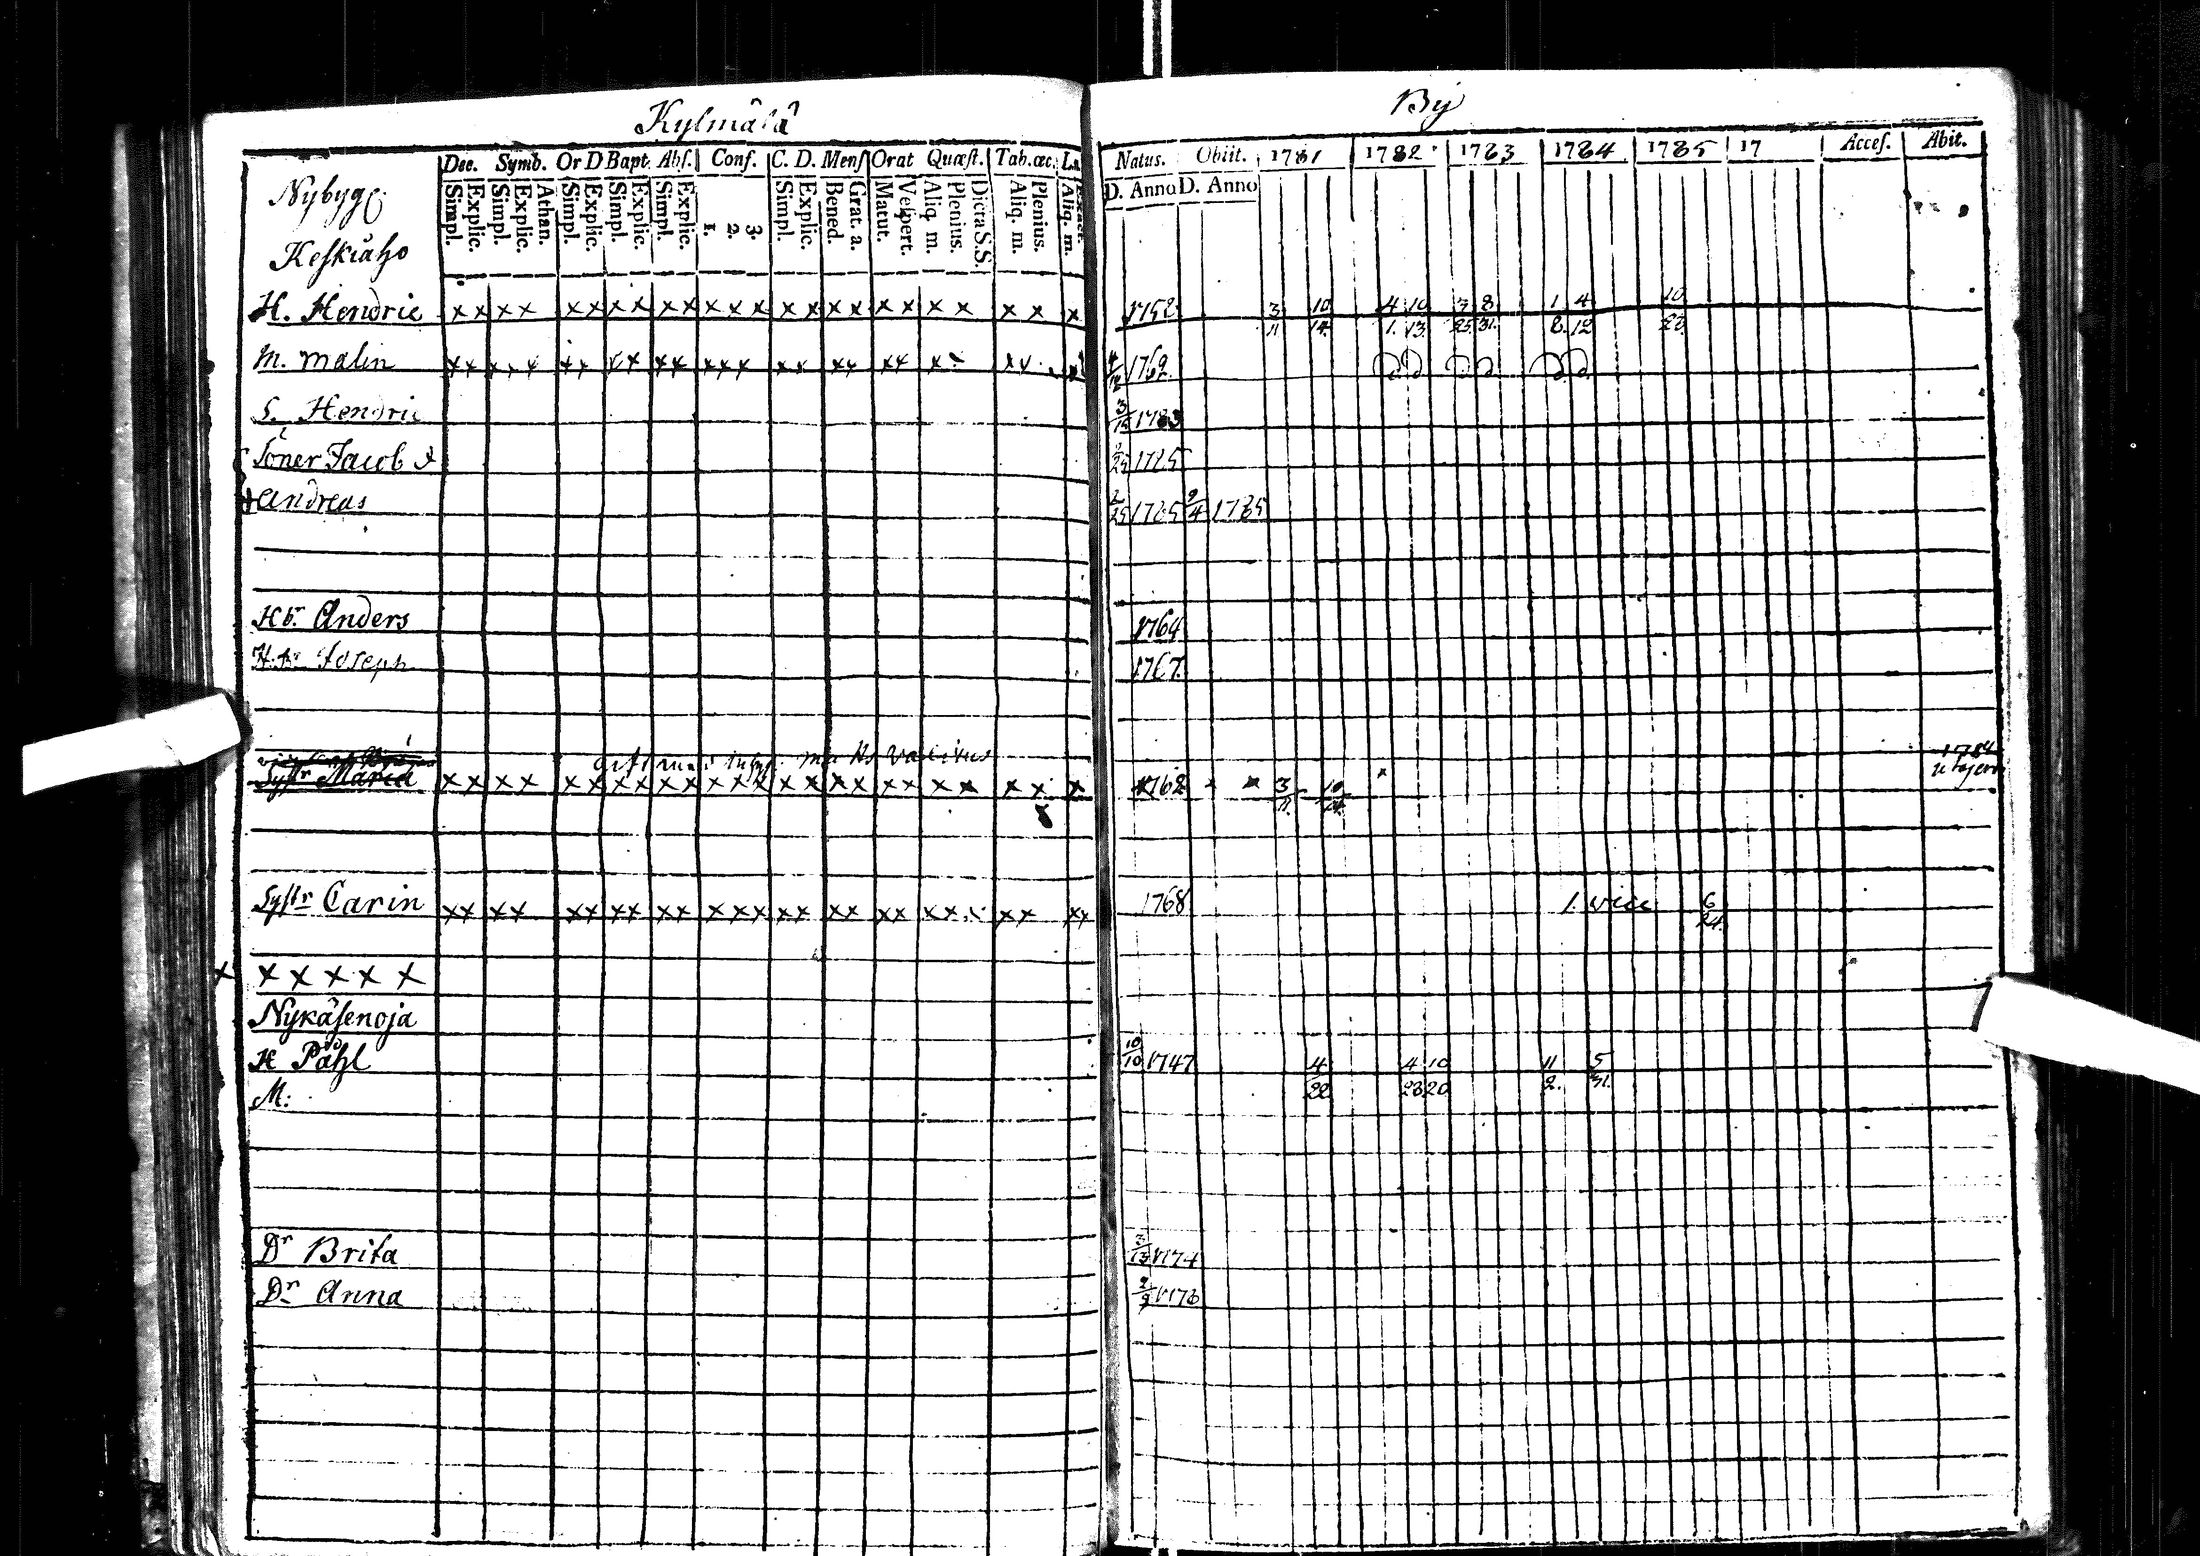 Kylmälä By
Dec. Symb. Or D Bapt. Abs. Conf. C. D. Mens Orat Quæst. Tab. œc. Natus. Obiit. 1781 1782 1783 1784 1785 17 Acces. Abit.
Simpl. Explic. Simpl. Explic. Athan. Simpl. Explic. Simpl. Explic. Simpl. Explic. 1. 2. 3. Simpl. Explic. Bened. Grat. a. Matut. Vespert. Aliq. m. Plenius. Dicta S.S. Aliq. m. Plenius. Aliq. m. D. Anno D. Anno
Nybyg:
Keskiaho
H. Hendric x x x x x x x x x x x x x x x x x x x x x x x x x 1752 3/11 10/14 4/1 10/13 3/25 8/31 1/8 4/12 10/23
M. Malin 4/12 1762
S. Hendric 3/15 1783
Söner Jacob & 2/25 1785
Andreas 2/25 1785 9/4 1785
Hbr Anders 1764
Hbr Joseph 1767.
1784
Systr Maria x x x x x x x x x x x x x x x x x x x x x x x x 1762 3/11 10/14
Systr Carin x x x x x x x x x x x x x x x x x x x x x x x x 1768 1. vice 6/24
x x x x x x
Nykäsenoja
H Påhl 10/10 1747 4/22 4/23 10/20 11/2 5/31
M:
Dr Brita 3/13 1774
Dr Anna